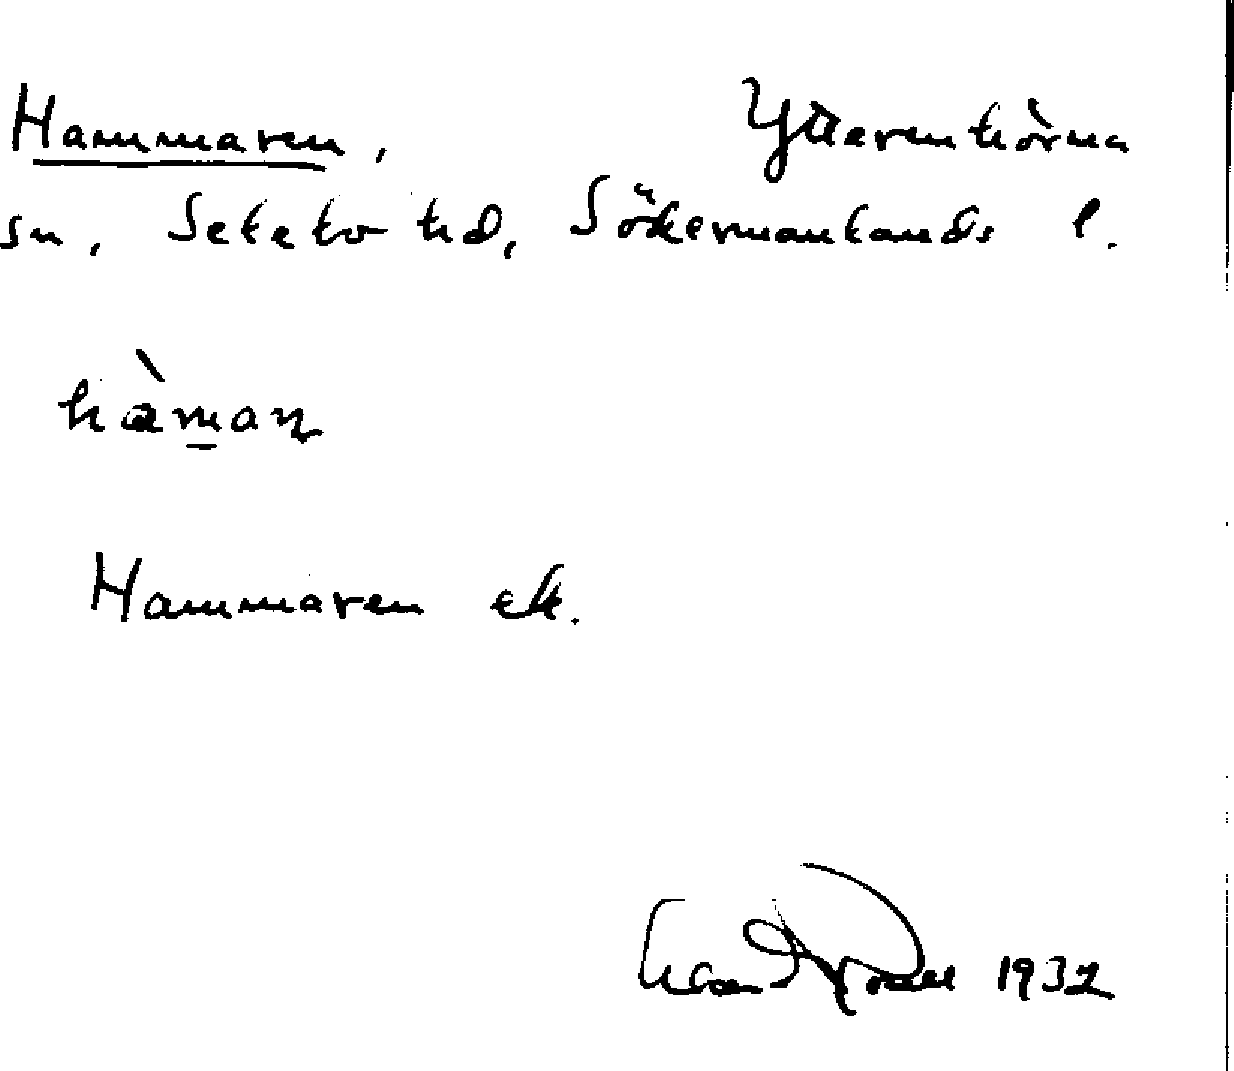 Hammaren, Ytterenhörna
sn, Selebo hd, Södermanlands l.
hàmaɳ
Hammaren ek.
1932